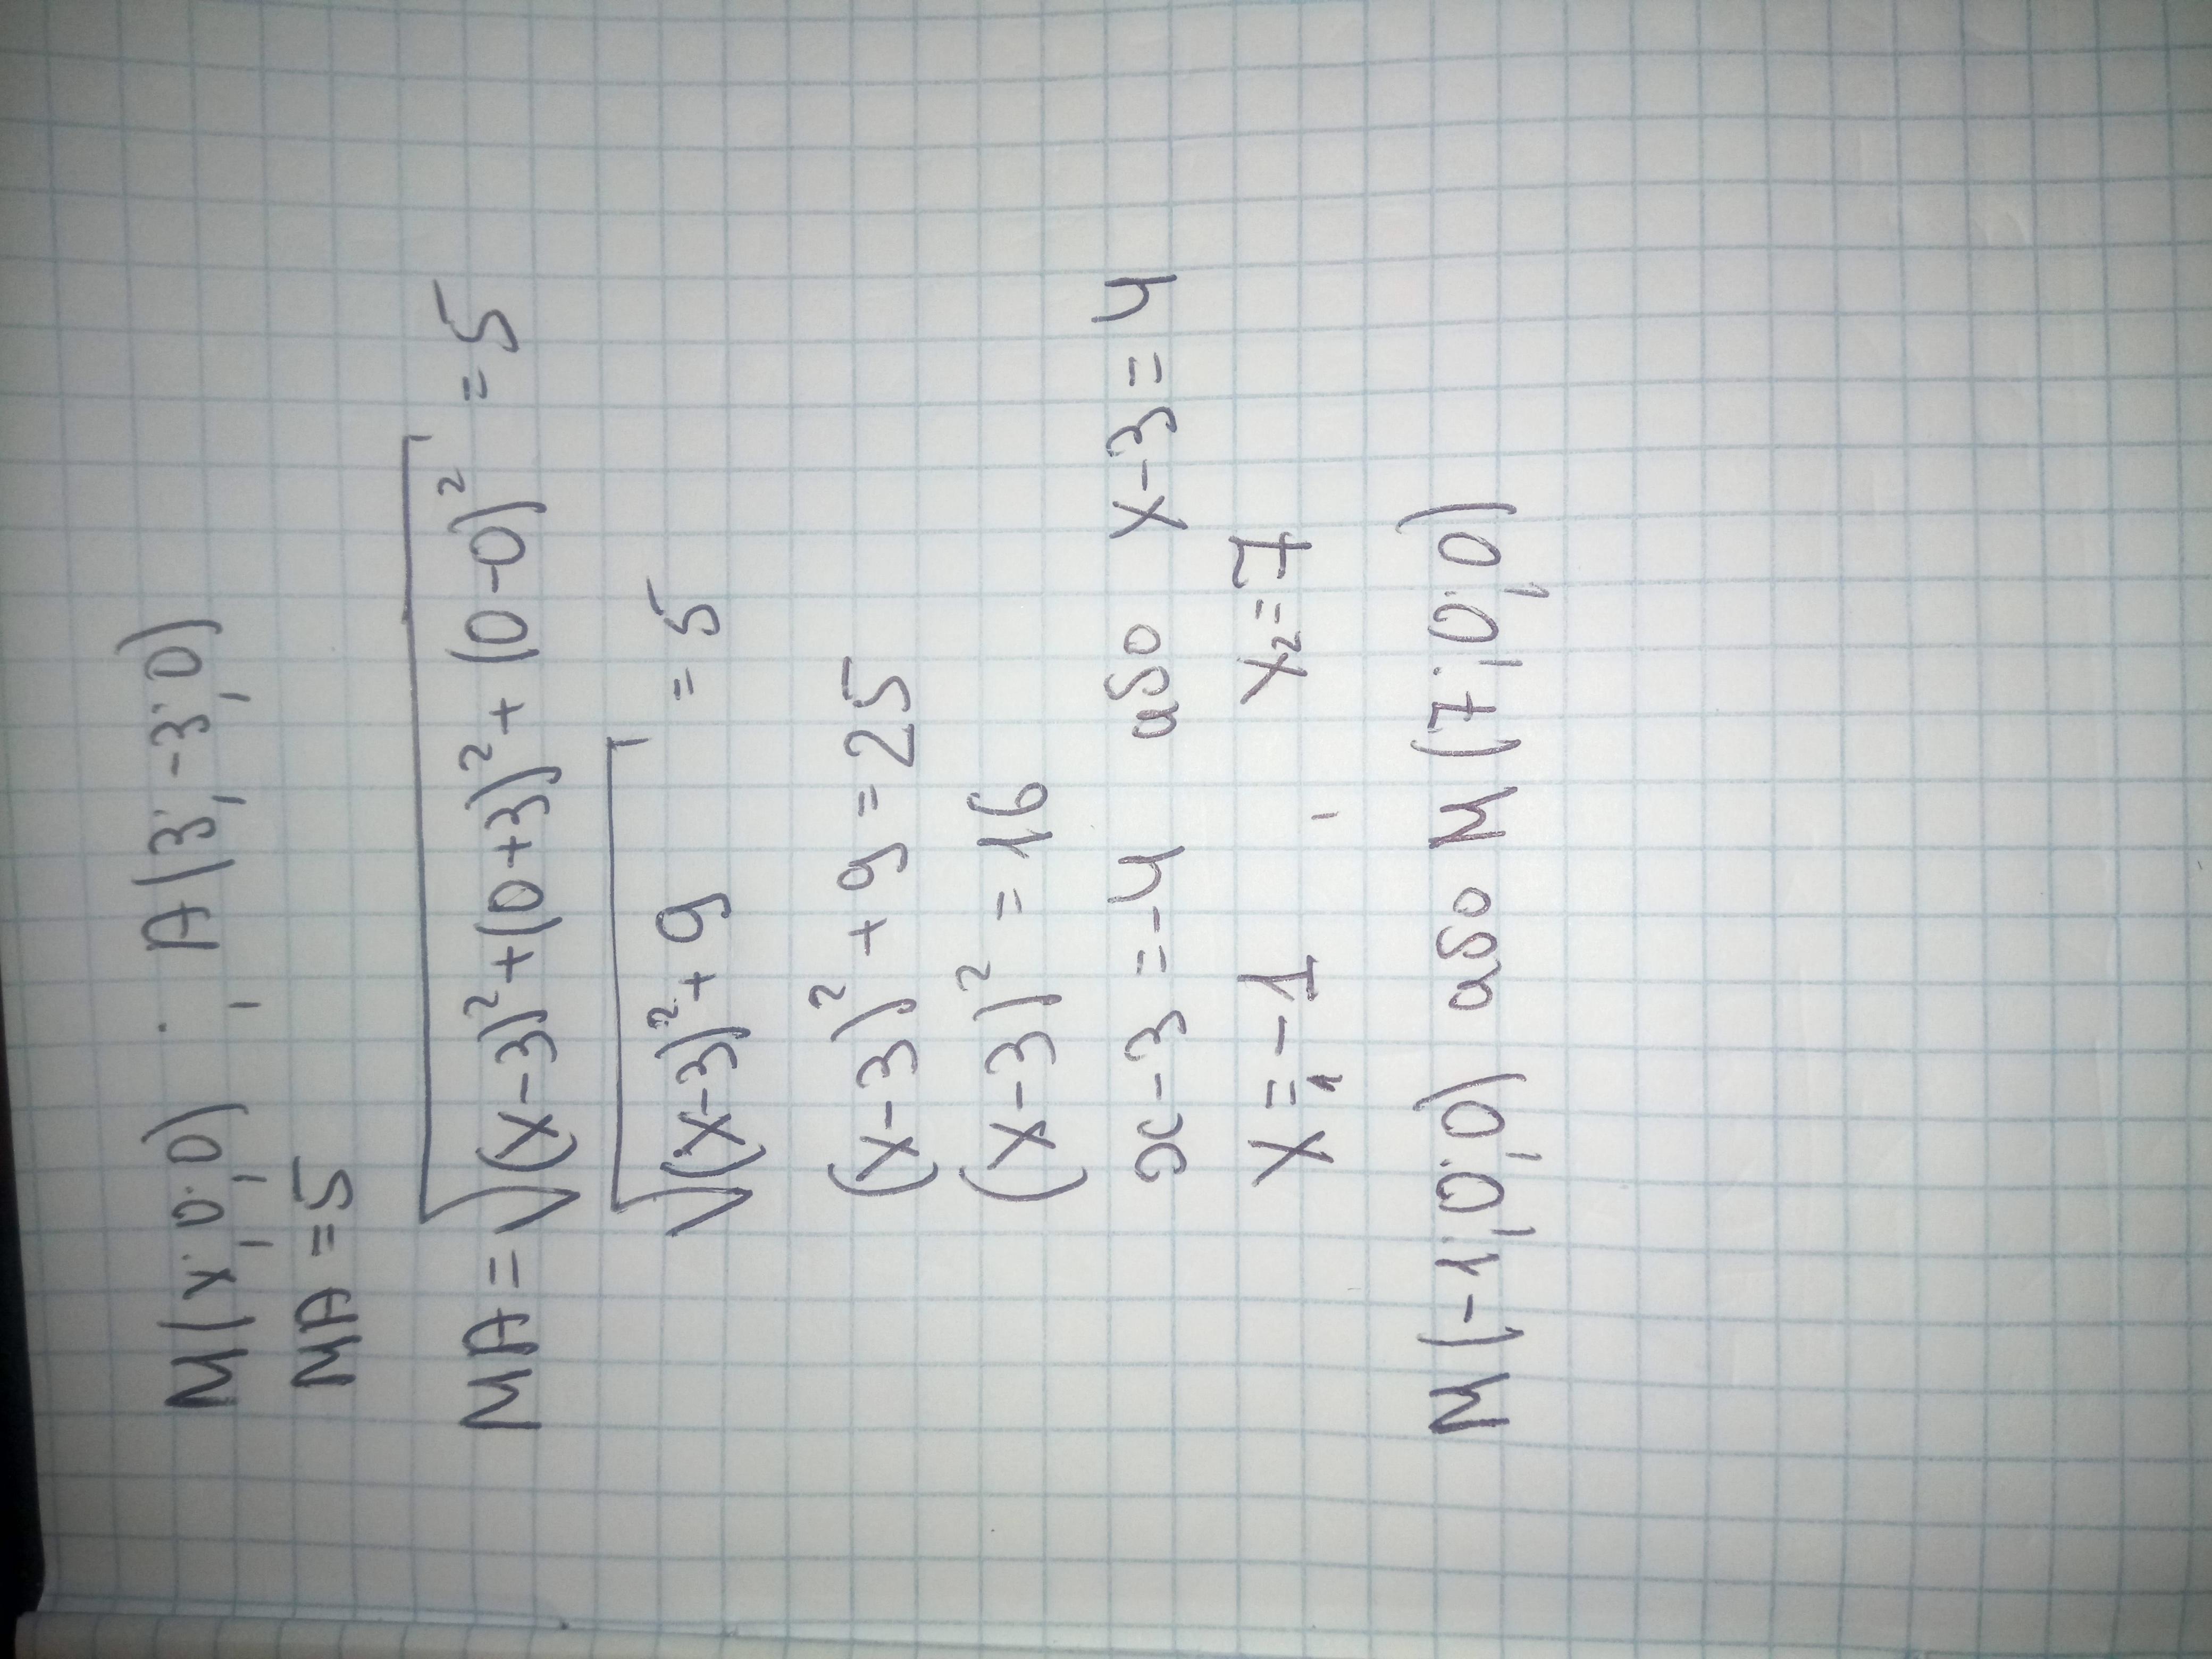 M(x;0;0) ; A(3;-3;0)
MA=5
MA=√(x-3)²+(0+3)²+(0-0)² =5
√(x-3)²+9 =5
(x-3)²+9=25
(x-3)²=16
x-3=-4 або x-3=4
x₁=-1 , x₂=7
M(-1;0;0) або M(7;0;0)